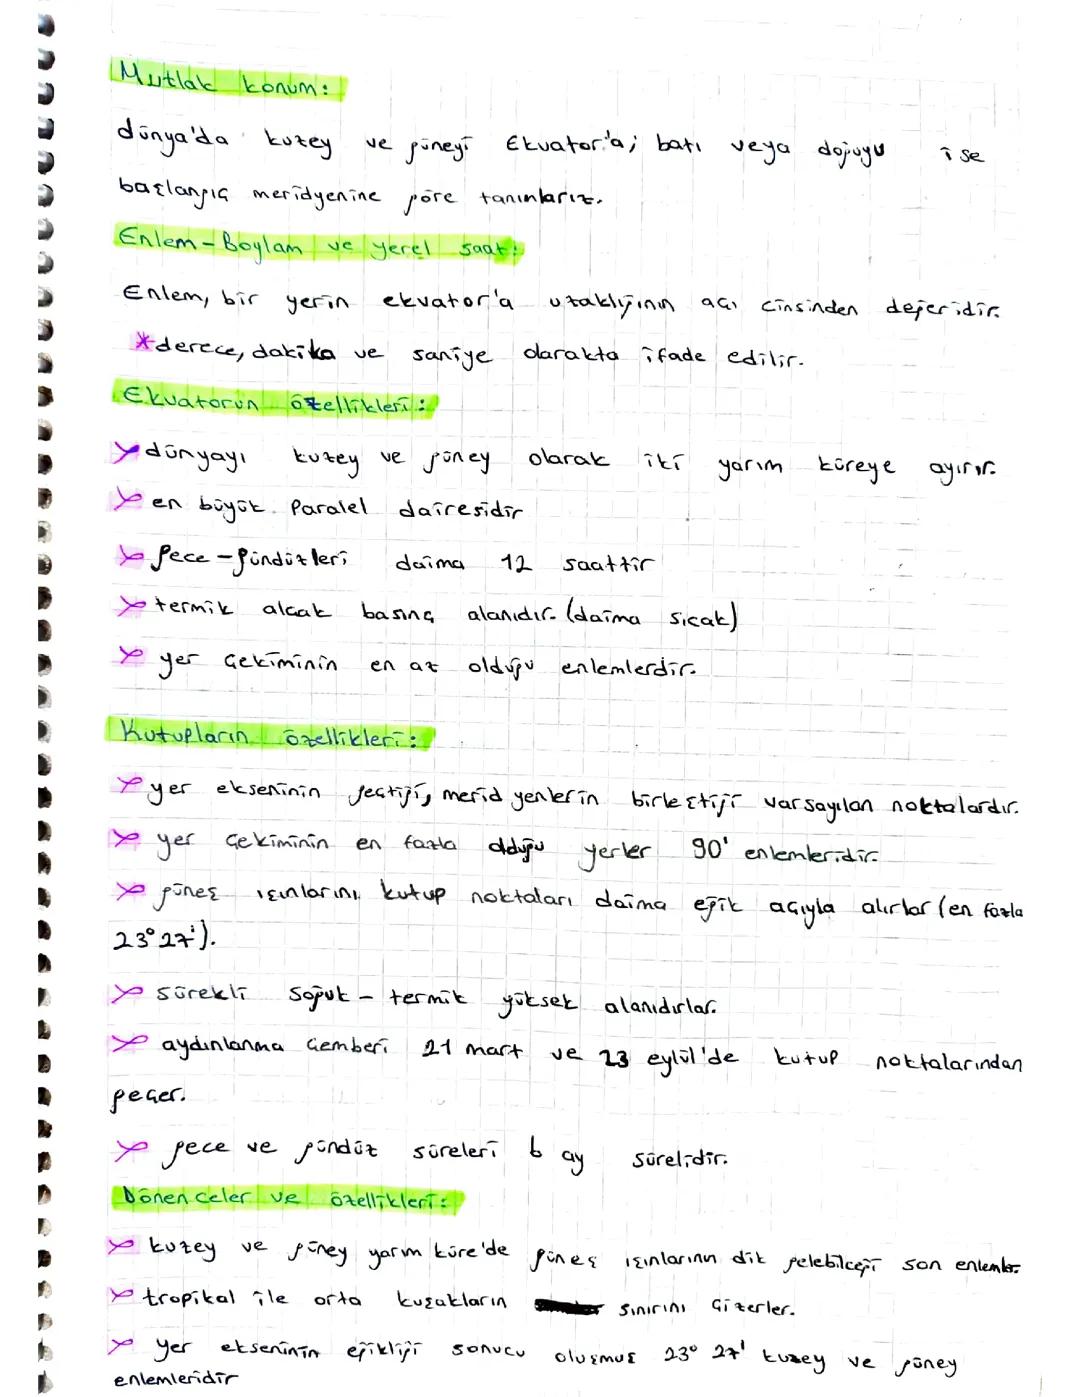 Mutlak konum:
dünya'da kuzey ve güneyi Ekvator'a; batı veya doğuyu ise
başlangıç meridyenine göre tanınlarız.
Enlem-Boylam ve yerel saat:
Enlem, bir yerin ekvator'a uzaklığının açı cinsinden değeridir.
*derece, dakika ve saniye olarakta ifade edilir.
Ekvatorun özellikleri:
dünyayı kuzey ve güney olarak iki yarım küreye ayırır.
en büyük Paralel dairesidir
gece-gündüzleri daima 12 saattir
termik alçak basınç alanıdır. (daima sıcak)
yer çekiminin en az olduğu enlemlerdir.
Kutupların özellikleri:
yer ekseninin geçtiği, meridyenlerin birleştiği varsayılan noktalardır.
yer çekiminin en fazla olduğu yerler 90' enlemleridir.
güneş ışınlarını kutup noktaları daima eğik açıyla alırlar (en fazla
23° 27').
sürekli soğuk - termik yüksek alanıdırlar.
aydınlanma çemberi 21 mart ve 23 eylül'de kutup noktalarından
geçer.
gece ve gündüz süreleri 6 ay sürelidir.
Dönenceler ve özellikleri:
kuzey ve güney yarım küre'de güneş ışınlarının dik gelebilceği son enlemler.
tropikal ile orta kuşakların sınırını çizerler.
yer ekseninin eğikliği sonucu oluşmuş 23° 27' kuzey ve güney
enlemleridir